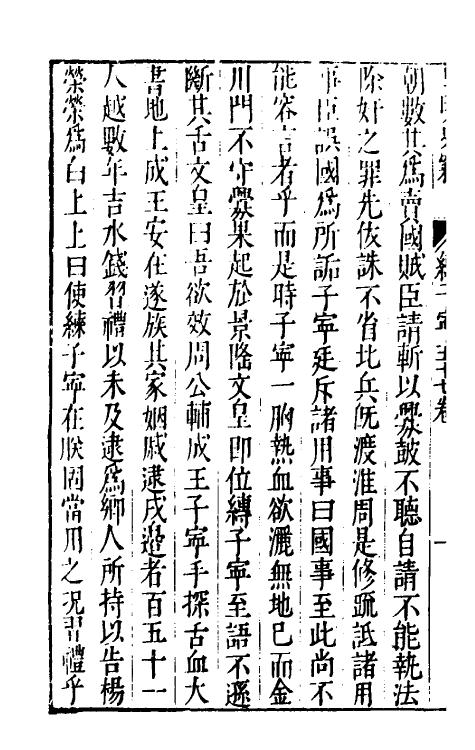 朝數其爲賣國賊臣請斬以釁鼓不聽自請不能執法
除奸之罪先伏誅不省北兵旣渡淮周是修疏詆諸用
事臣誤國爲所詬子寧廷斥諸用事曰國事至此尚不
能容言者乎而是時子寧一胸熱血欲灑無地已而金
川門不守釁果起於景隆文皇卽位縛子寧至語不遜
斷其舌文皇曰吾欲效周公輔成王子寧手探舌血大
書地上成王安在遂族其家姻戚逮戍邊者百五十一
人越數年吉水錢習禮以未及逮爲鄉人所持以告楊
榮榮爲白上上曰使練子寧在朕固當用之况習禮乎